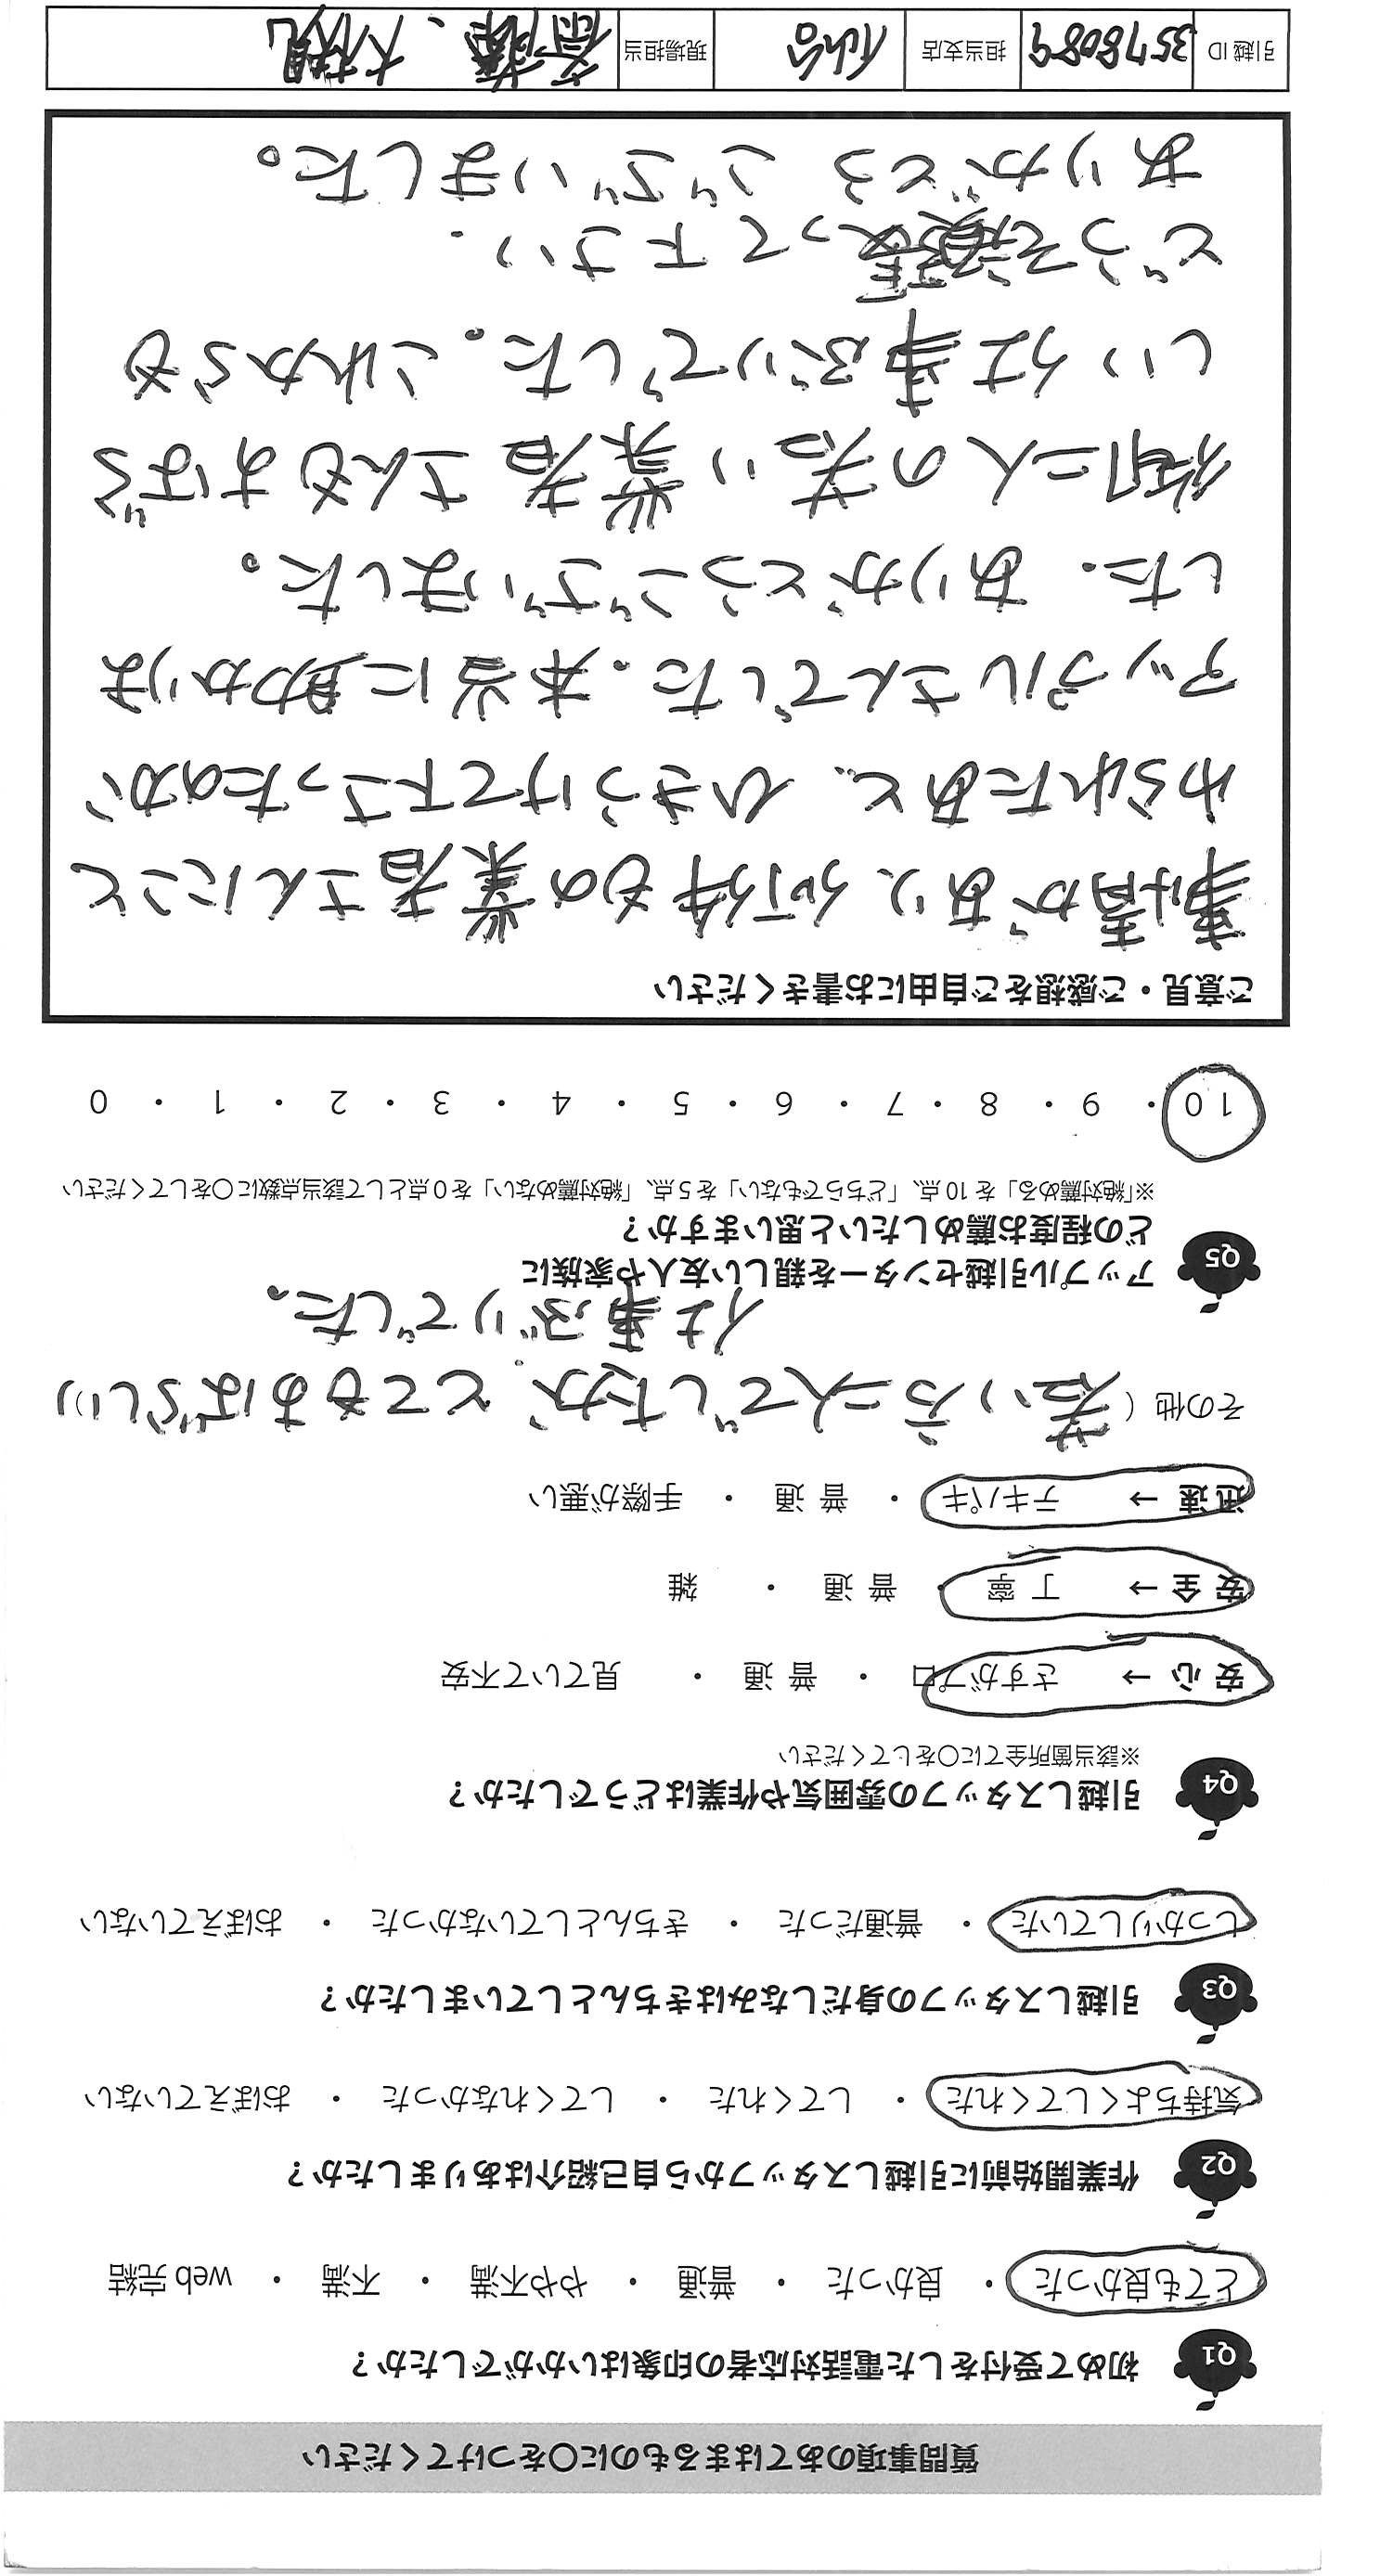 質問事項のあてはまるものに○をつけてください
Q1 初めて受付をした電話対応者の印象はいかがでしたか？
とても良かった ・ 良かった ・ 普通 ・ やや不満 ・ 不満 ・ web 完結
Q2 作業開始前に引越しスタッフから自己紹介はありましたか？
気持ちよくしてくれた ・ してくれた ・ してくれなかった ・ おぼえていない
Q3 引越しスタッフの身だしなみはきちんとしていましたか？
しっかりしていた ・ 普通だった ・ きちんとしていなかった ・ おぼえていない
Q4 引越しスタッフの雰囲気や作業はどうでしたか？
※該当箇所全てに○をしてください
安 心 → さすがプロ ・ 普 通 ・ 見ていて不安
安 全 → 丁 寧 ・ 普 通 ・ 雑
迅 速 → テキパキ ・ 普 通 ・ 手際が悪い
その他（ 若い方二人でしたが、とてもすばらしい
仕事ぶりでした。
Q5 アップル引越センターを親しい友人や家族に
どの程度お薦めしたいと思いますか？
※「絶対薦める」を 10 点、「どちらでもない」を 5 点、「絶対薦めない」を 0 点として該当点数に○をしてください
10 ・ 9 ・ 8 ・ 7 ・ 6 ・ 5 ・ 4 ・ 3 ・ 2 ・ 1 ・ 0
ご意見・ご感想をご自由にお書きください
事情があり、何件もの業者さんにこと
わられたあと、ひきうけて下さったのが
アップルさんでした。本当に助かりま
した。ありがとうございました。
御二人の若い業者さんもすばら
しい仕事ぶりでした。これからも
どうぞ頑張って下さい。
ありがとうございました。
引越 ID 3578089 担当支店 仙台 現場担当 斎藤、大槻